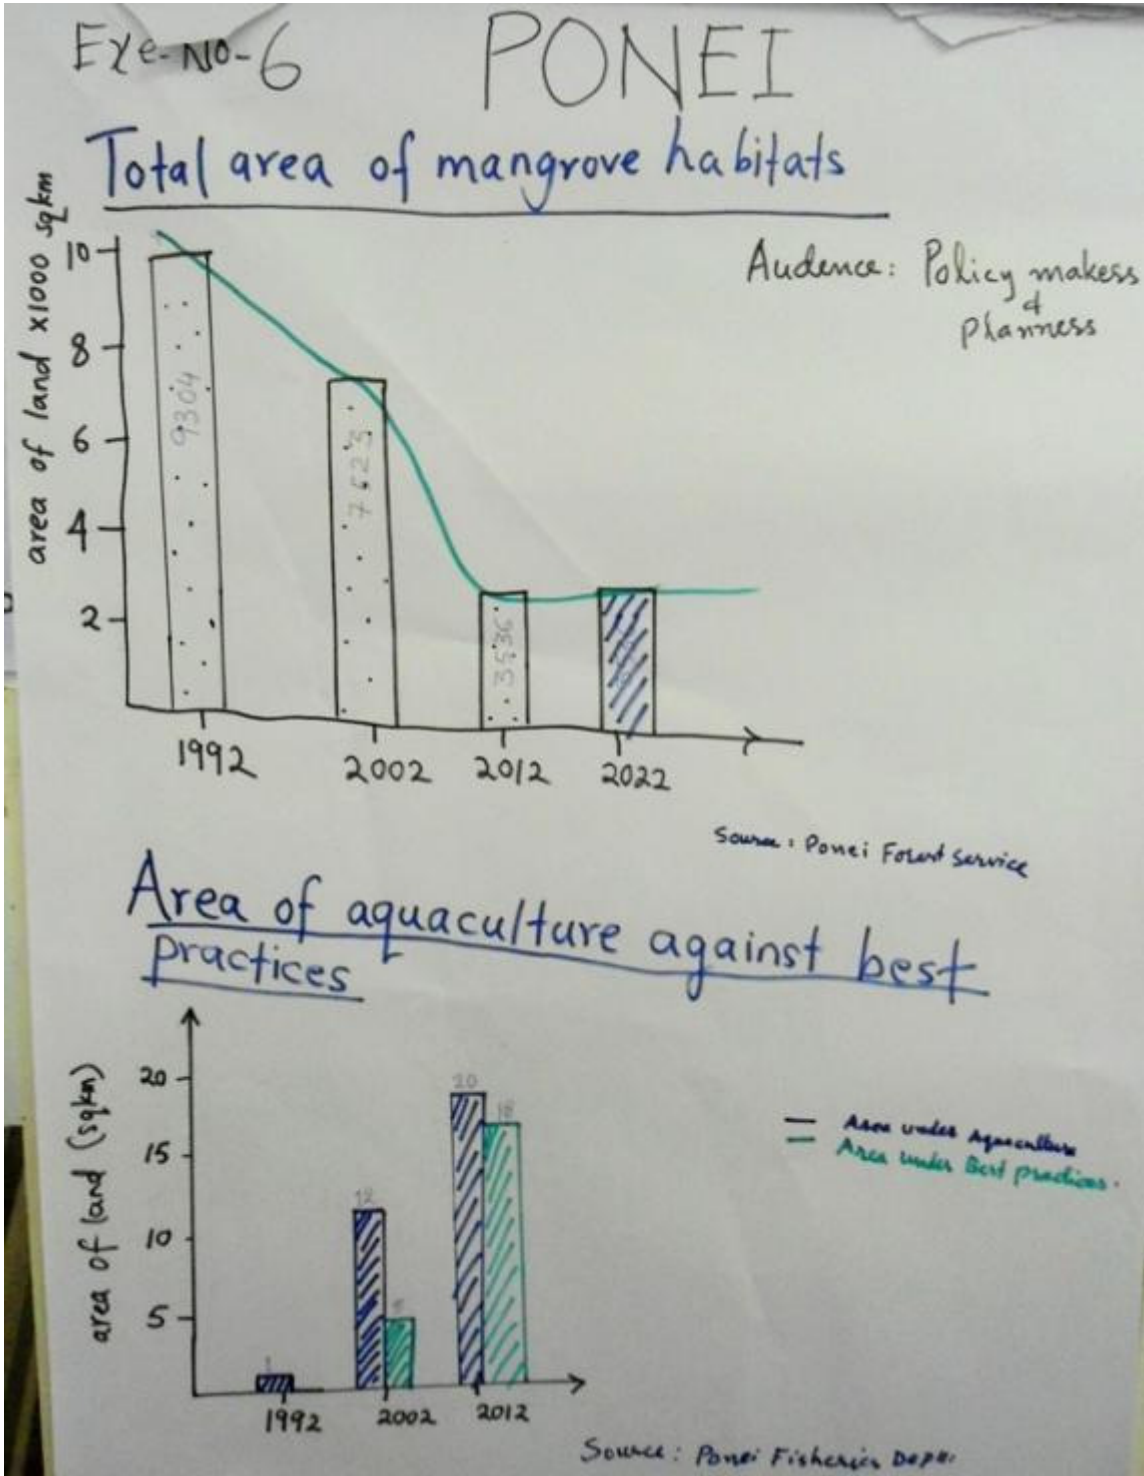 Exe-No-6
PONEI
Total area of mangrove habitats
Audence: Policy makess
&
Planness
area of land x1000 sqkm
10
8
6
4
2
9304
7623
3536
1992
2002
2012
2022
Source: Ponei Forest Service
Area of aquaculture against best
practices
area of land (sqkm)
20
15
10
5
1
12
5
20
18
1992
2002
2012
Area under Aquaculture
Area under Best practices.
Source: Ponei Fisheries Deptt.